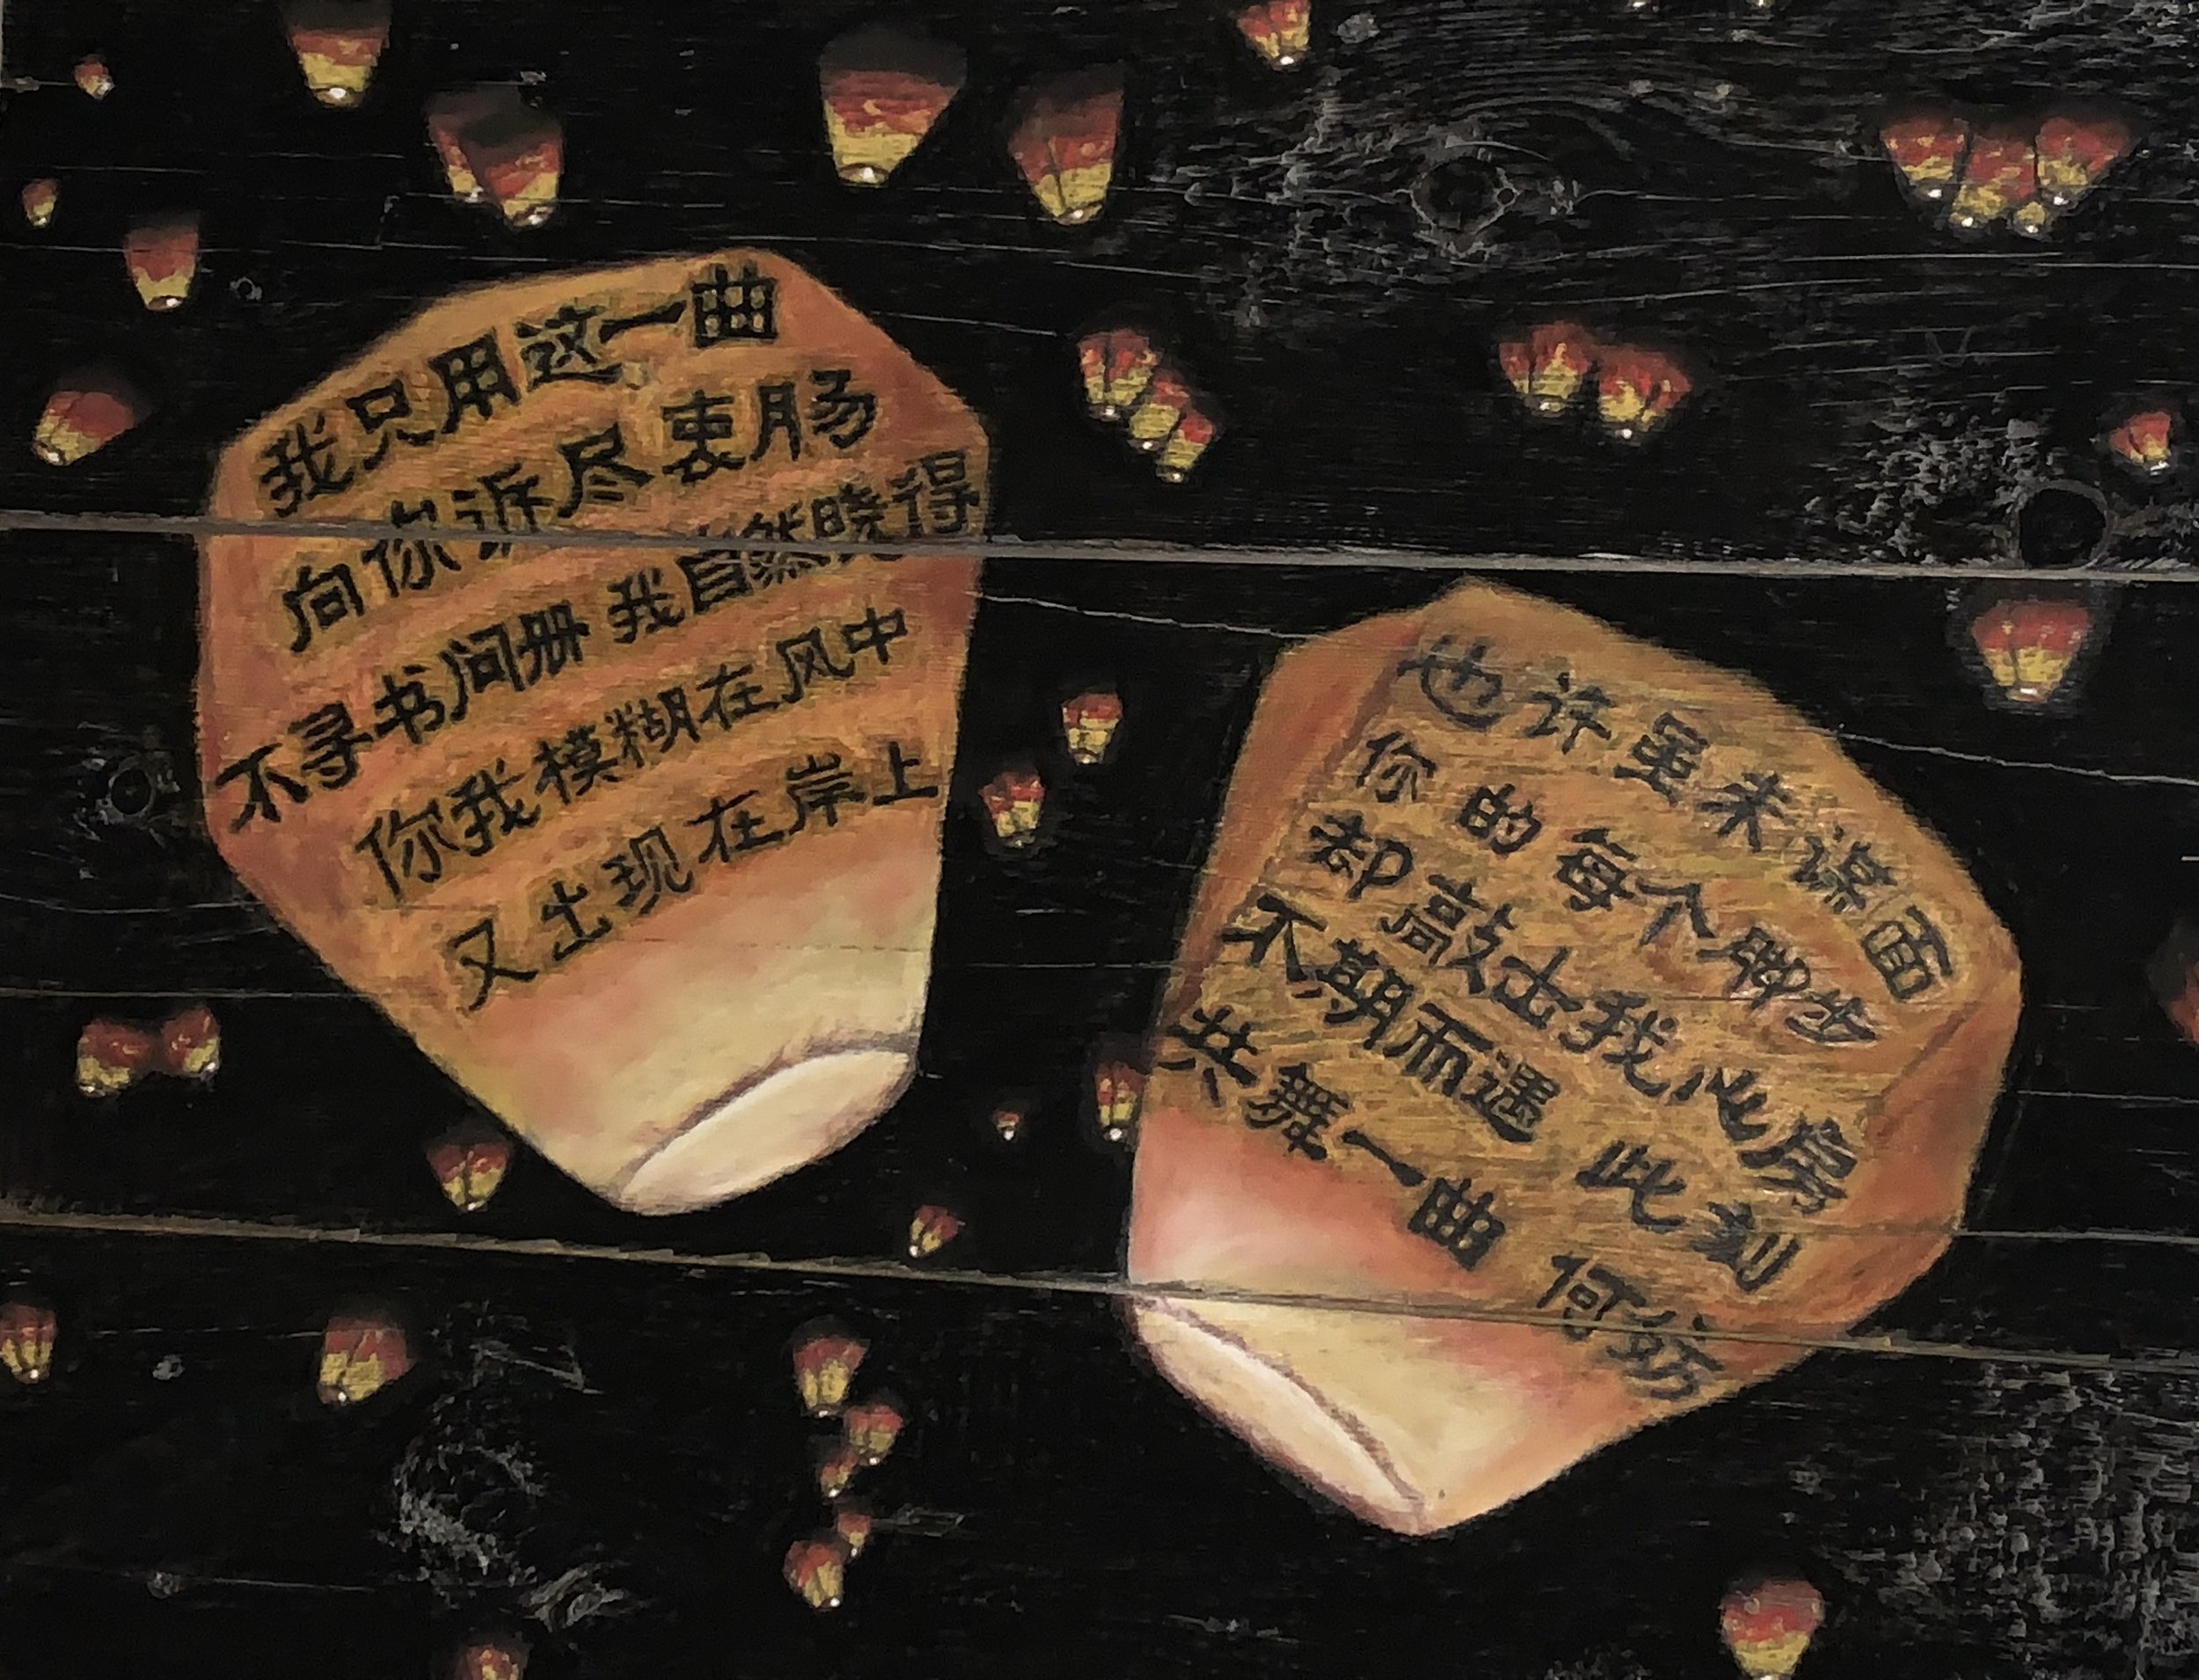 我只用这一曲
向你诉尽衷肠
不寻书问册 我自然晓得
你我模糊在风中
又出现在岸上
也许虽未谋面
你的每个脚步
却敲击我心房
不期而遇 此刻
共舞一曲 何妨